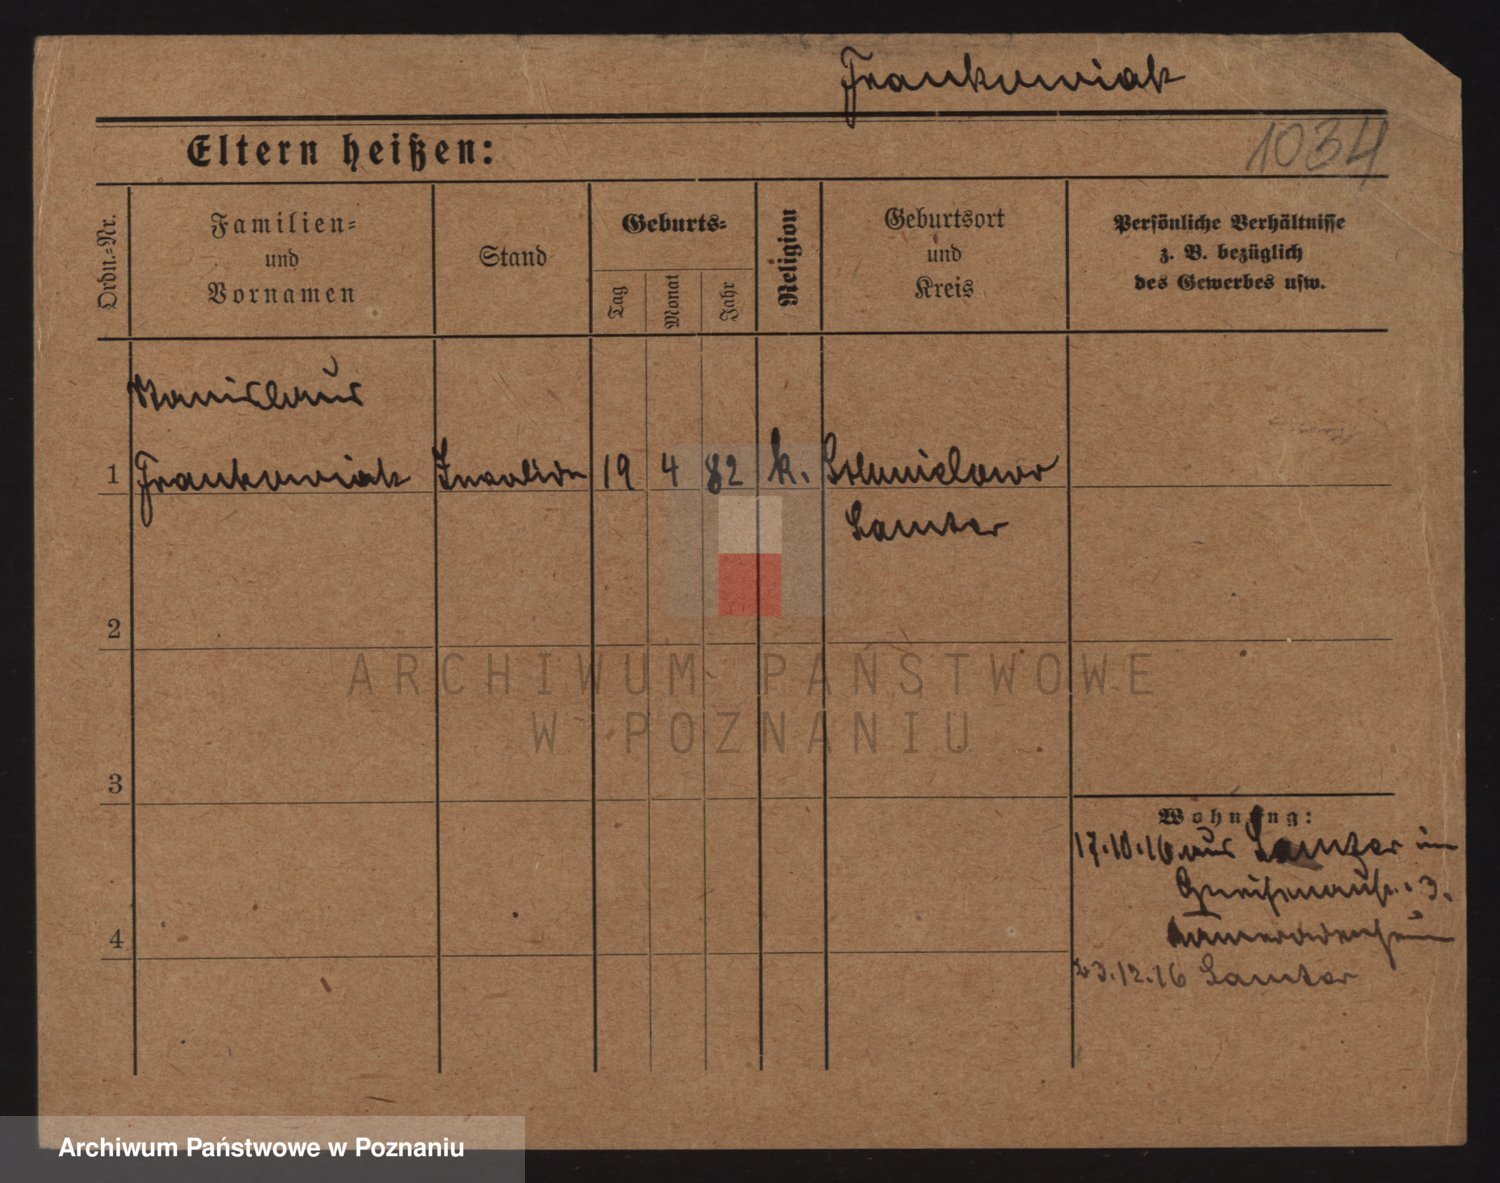 Frankowiak
1034
Eltern heißen:
Ordn.-Nr.
Familien-
und
Vornamen
Stand
Geburts-
Tag
Monat
Jahr
Religion
Geburtsort
und
Kreis
Persönliche Verhältnisse
z. B. bezüglich
des Gewerbes usw.
Stanislaus
1 Frankowiak Invalide 19 4 82 k.
Samter
2
ARCHIWUM PAŃSTWOWE
W POZNANIU
3
Wohnung:
17.10.16 aus Samter im
Gneisenaustr. 3.
4
Kameradenheim
23.12.16 Samter
Archiwum Państwowe w Poznaniu